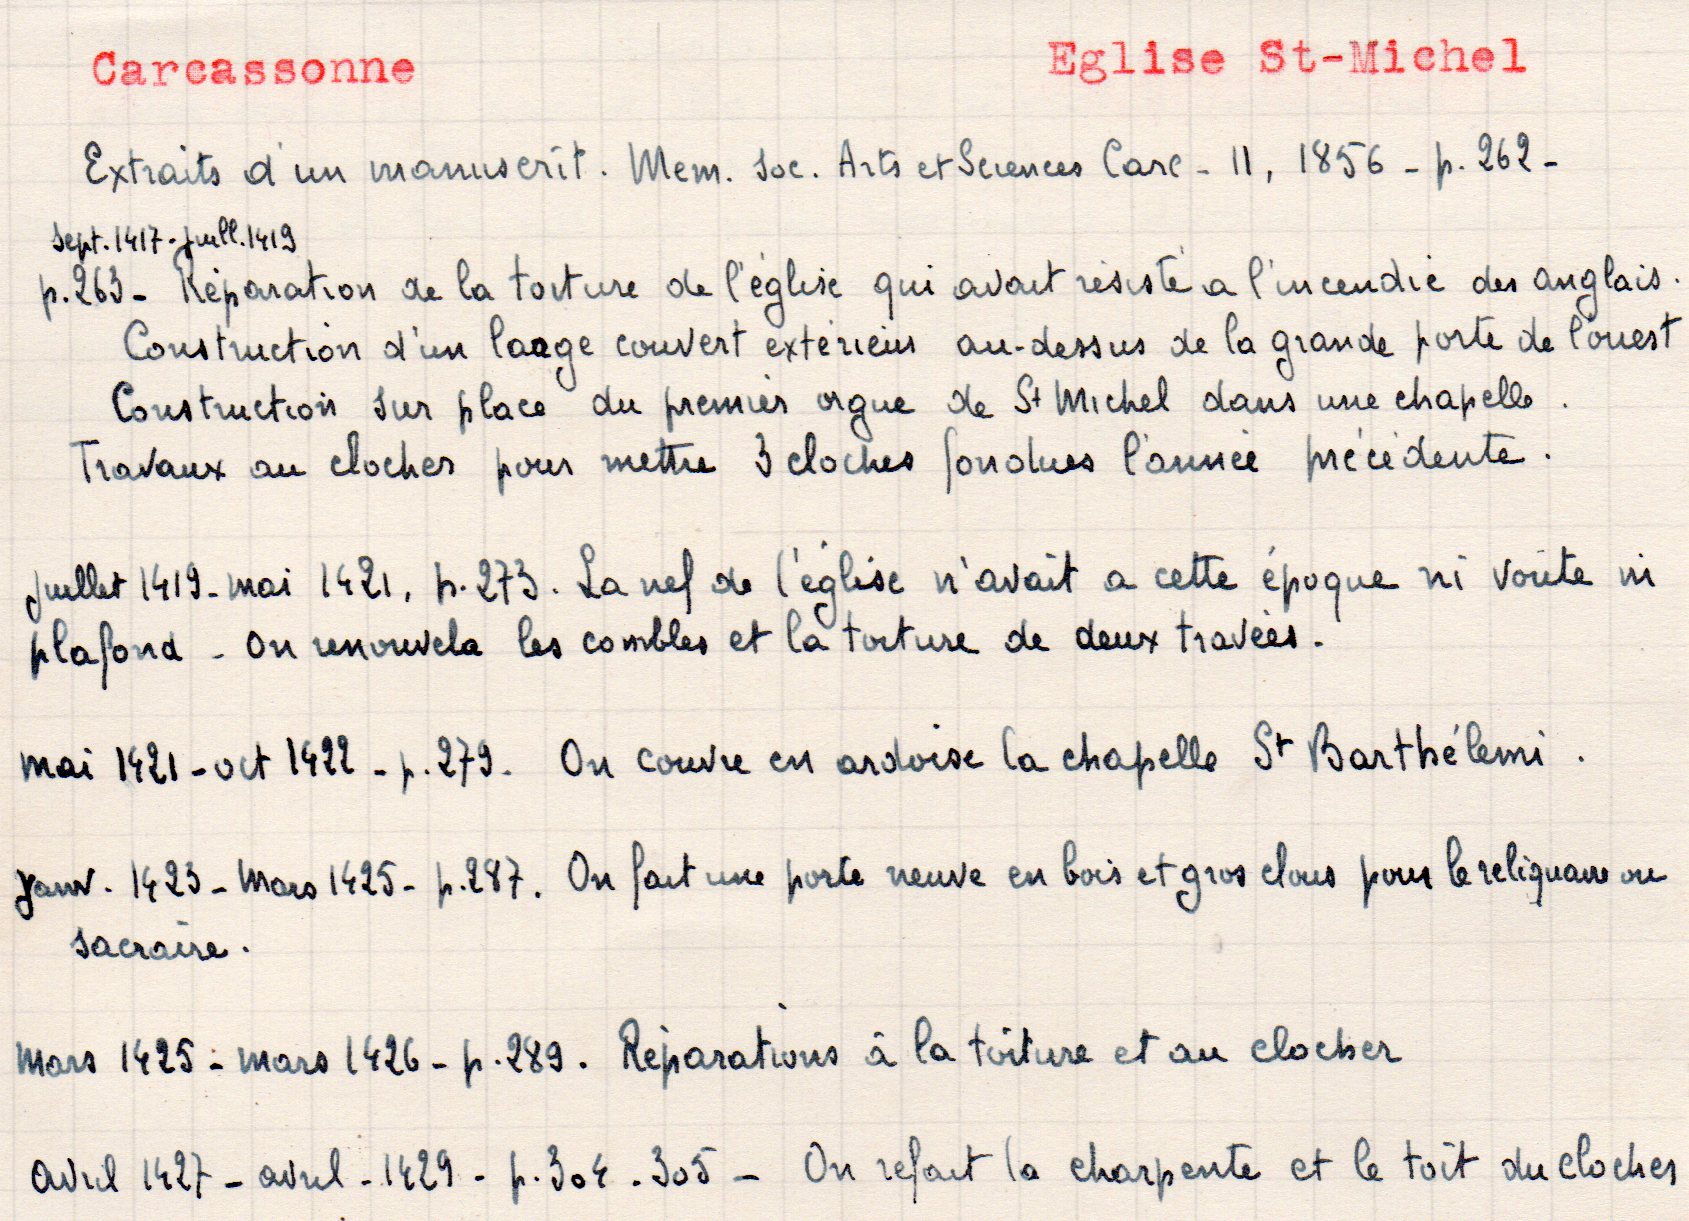 Carcassonne Eglise St-Michel
Extraits d'un manuscrit. Mem. Soc. Arts et Sciences Carc - II, 1856 - p. 262 -
Sept. 1417 - juill. 1419
p. 263 - Réparation de la toiture de l'église qui avait résisté a l'incendie des anglais.
Construction d'un laage couvert extérieur au-dessus de la grande porte de l'ouest
Construction sur place du premier orgue de St Michel dans une chapelle.
Travaux au clocher pour mettre 3 cloches fondues l'année précédente.
Juillet 1419 - mai 1421, p. 273. La nef de l'église n'avait a cette époque ni voûte ni
plafond - On renouvela les combles et la toiture de deux travées.
mai 1421 - oct 1422 - p. 279. On couvre en ardoise la chapelle St Barthélemi.
Janv. 1423 - Mars 1425 - p. 287. On fait une porte neuve en bois et gros clous pour le reliquaire ou
sacraire.
Mars 1425 - mars 1426 - p. 289. Réparations à la toiture et au clocher
Avril 1427 - avril - 1429 - p. 304 - 305 - On refait la charpente et le toit du clocher